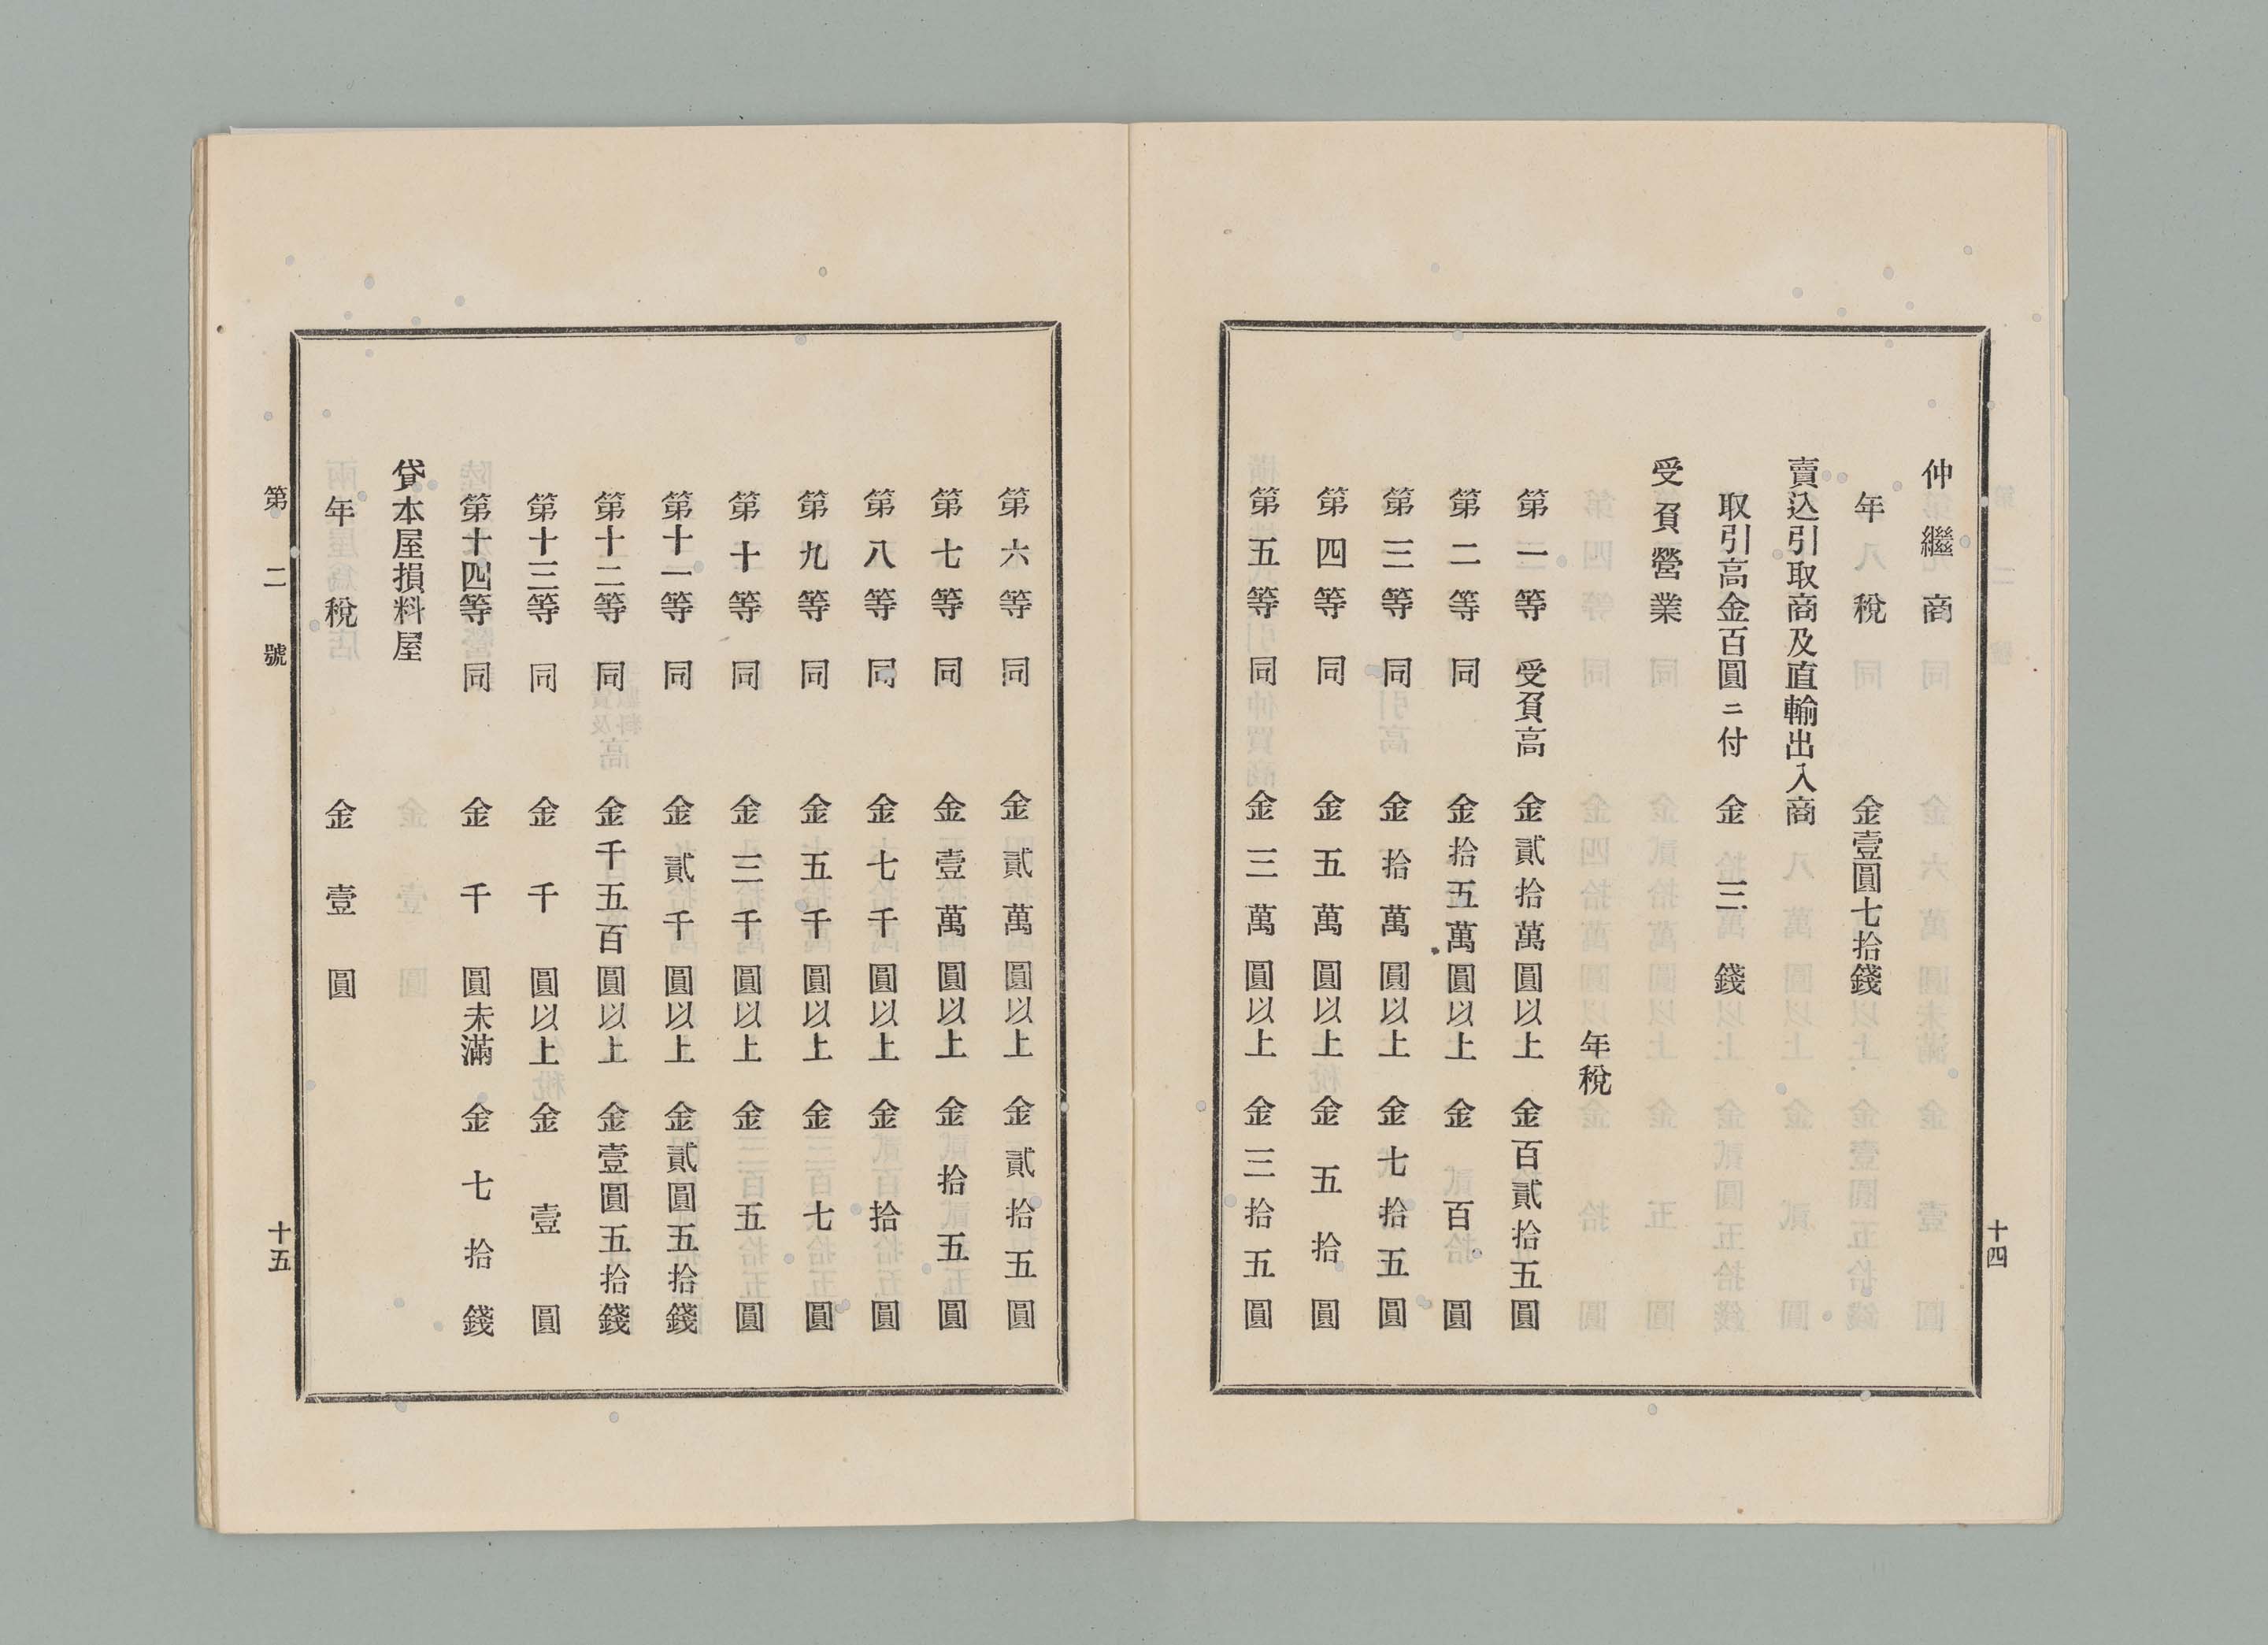 仲繼商
年稅 金壹圓七拾錢
賣込引取商及直輸出入商
取引高金百圓ニ付 金三錢
受負營業
年稅
第一等 受負高 金貳拾萬圓以上 金百貳拾五圓
第二等 同 金拾五萬圓以上 金百圓
第三等 同 金拾萬圓以上 金七拾五圓
第四等 同 金五萬圓以上 金五拾圓
第五等 同 金三萬圓以上 金三拾五圓
十四
第六等 同 金貳萬圓以上 金貳拾五圓
第七等 同 金壹萬圓以上 金拾五圓
第八等 同 金七千圓以上 金拾圓
第九等 同 金五千圓以上 金七圓
第十等 同 金三千圓以上 金五圓
第十一等 同 金貳千圓以上 金貳圓五拾錢
第十二等 同 金千五百圓以上 金壹圓五拾錢
第十三等 同 金千圓以上 金壹圓
第十四等 同 金千圓未滿 金七拾錢
貸本屋損料屋
年稅 金壹圓
第二號 十五